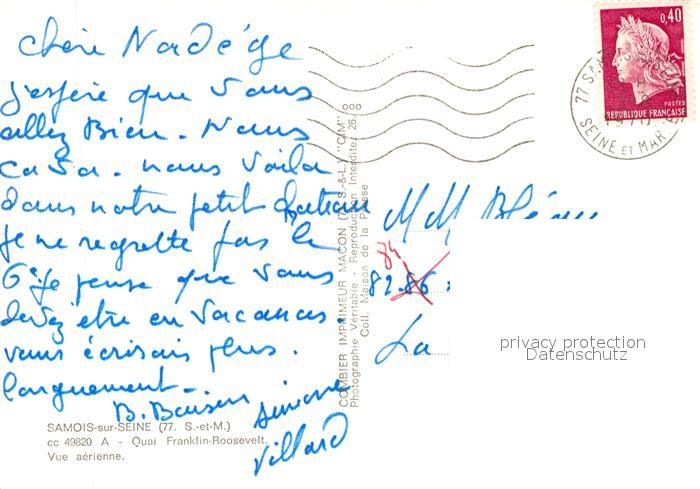 Chère Nadège
j'espère que vous
allez Bien. Nous
ca va. nous voila
dans notre petit Bateau
je ne regrette pas le
6e je pense que vous
devez être en vacances.
vous écrirais plus.
longuement -
B. Baisers Simone
Villard
SAMOIS-sur-SEINE (77. S.-et-M.)
cc 49820 A - Quai Franklin-Roosevelt.
Vue aérienne.
COMBIER IMPRIMEUR MACON (71. S.-&-L.) "CIM"
Photographie Véritable - Reproduction Interdite. 26.000
Coll. Maison de la Presse
0,40
POSTES
REPUBLIQUE FRANÇAISE
77
SEINE ET MAR
M M
84
82.86
La
privacy protection
Datenschutz